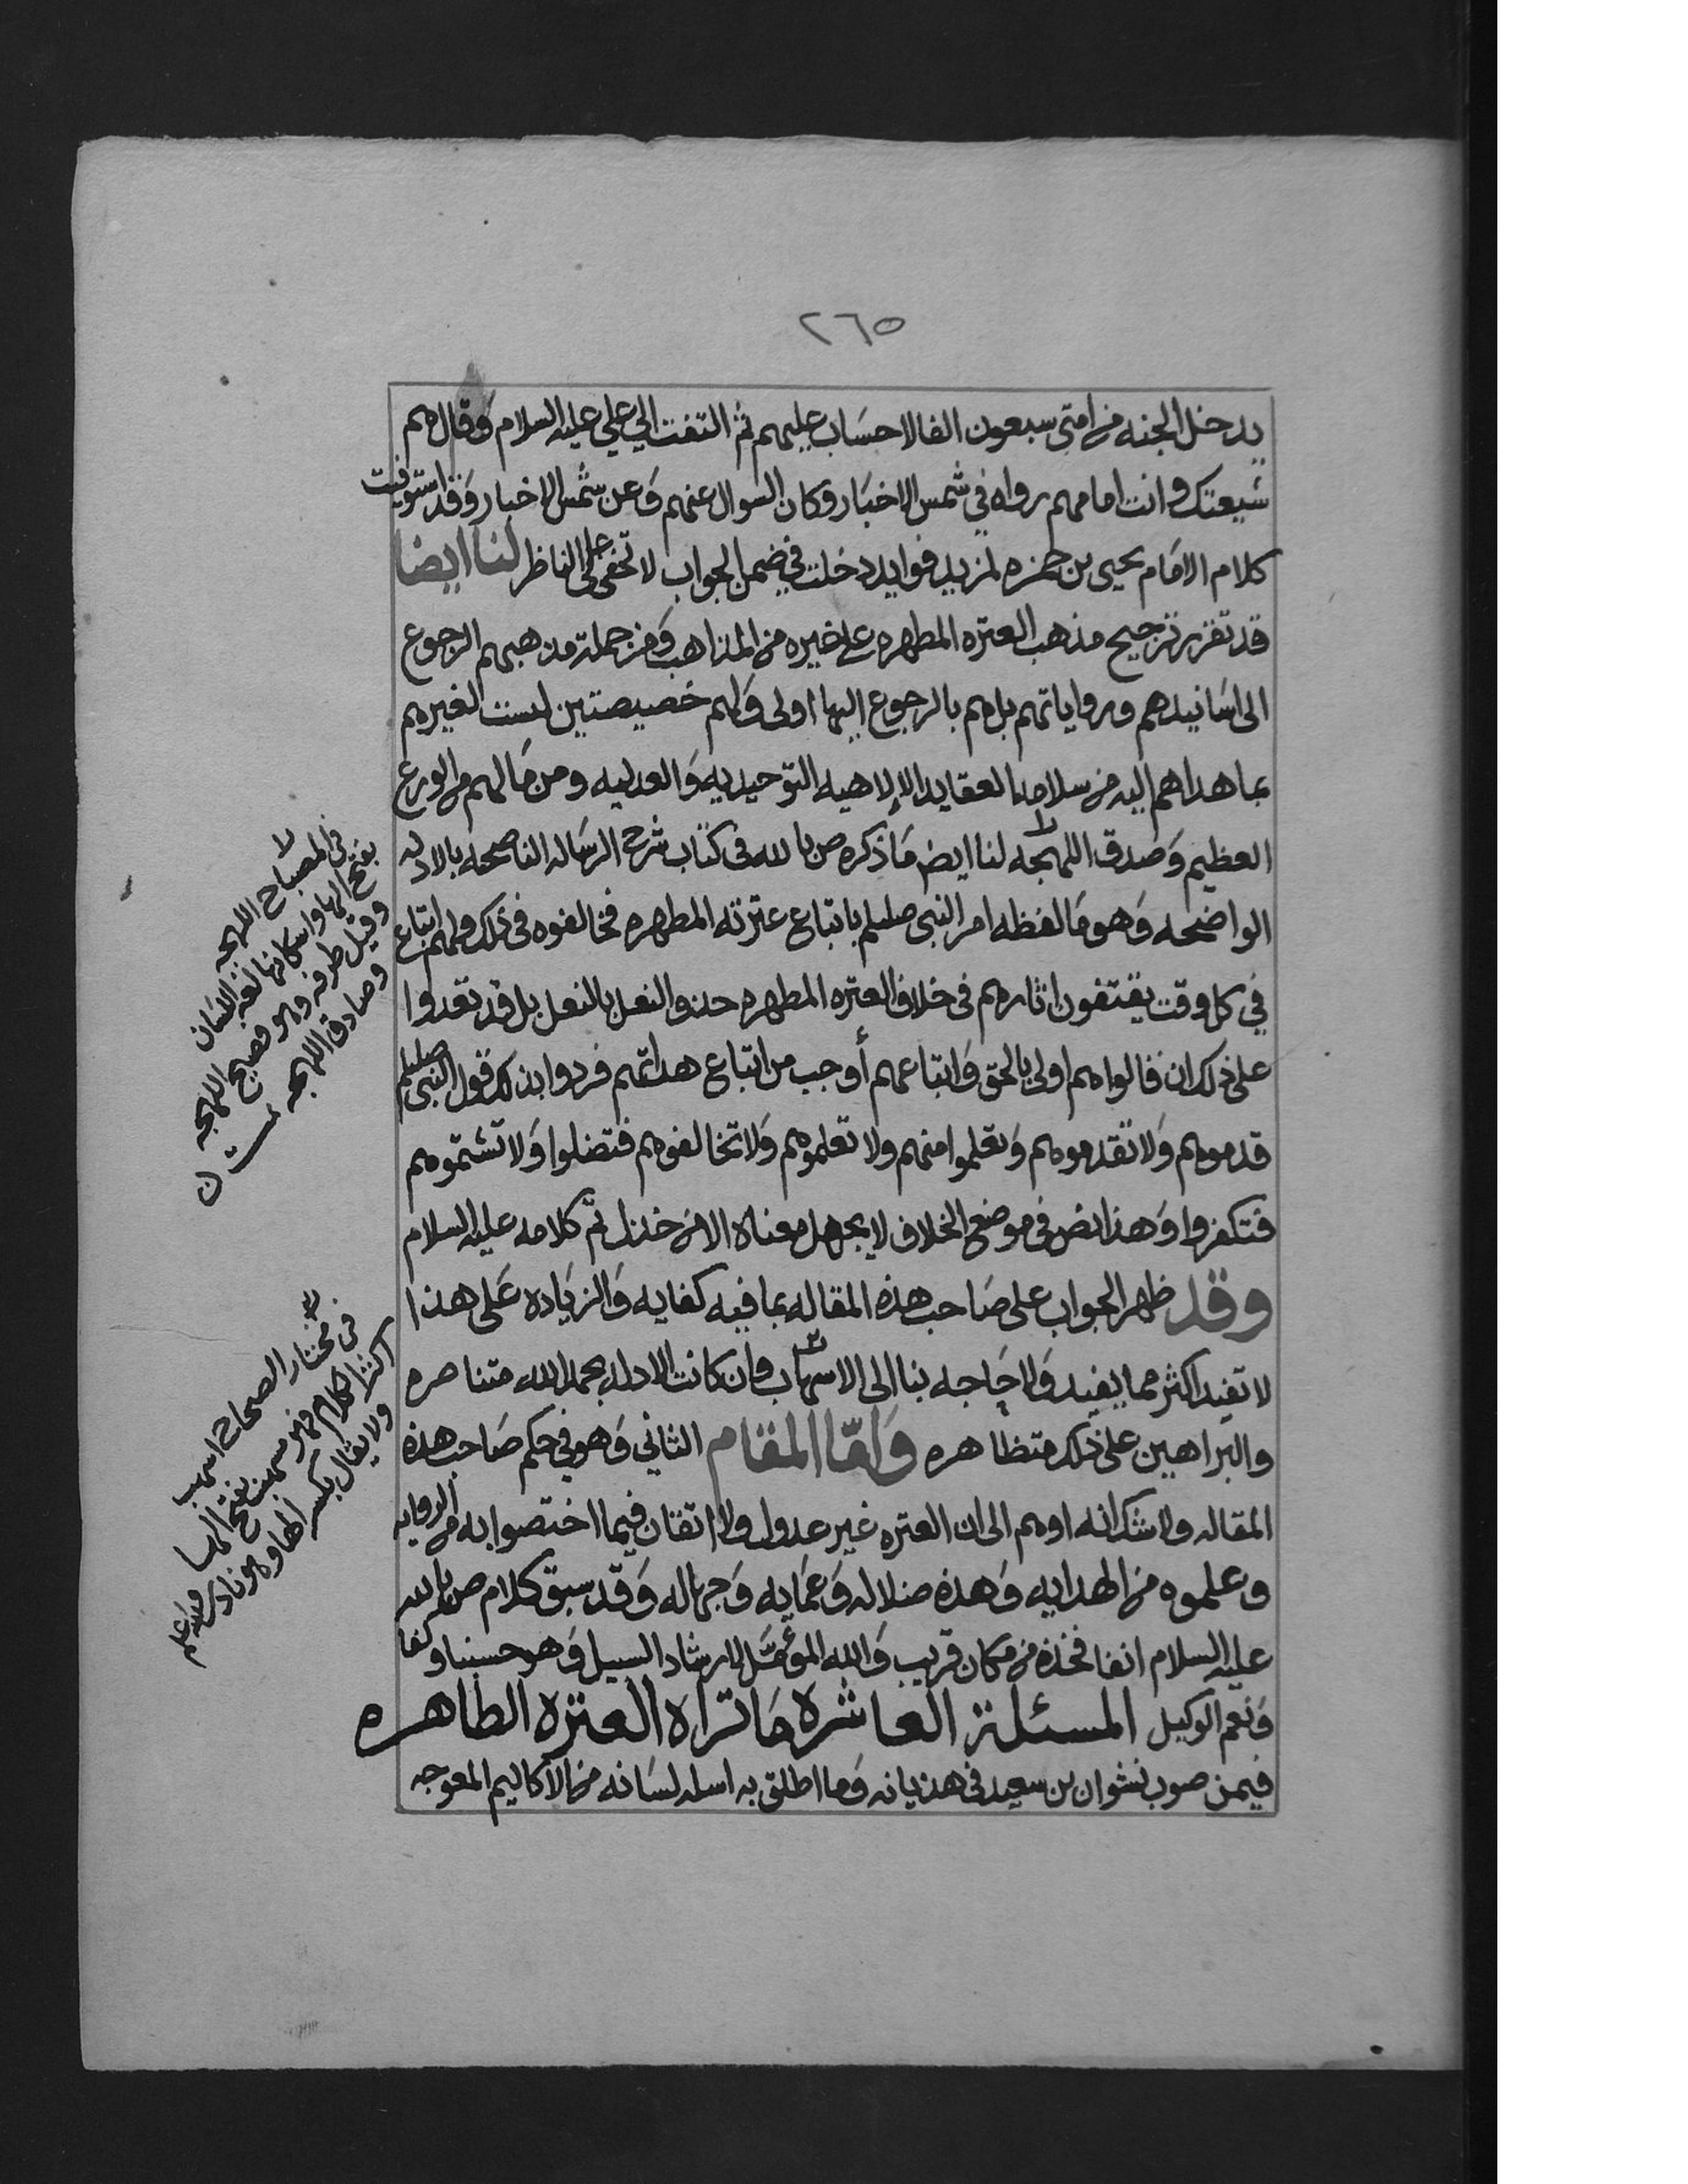 ٢٦٥
يدخل الجنه من امتى سبعون الفا لا حساب عليهم ثم التفت الي علي عليه السلام وقال هم
شيعتك وانت امامهم رواه في شمس الاخبار وكان السوال عنهم وعن شمس الاخبار وقد استوفيت
كلام الامام يحيى بن حمزه لمزيد فوايد دخلت في ضمن الجواب لا تخفى على الناظر لنا ايضا
قد تقرر ترجيح مذهب العتره المطهره على غيره من المذاهب ومن جملة مذهبهم الرجوع
الى اسانيدهم ورواياتهم بل هم بالرجوع اليها اولى ولهم خصيصتين ليست لغيرهم
بما هداهم اليه من سلامه العقايد الالاهيه التوحيديه والعدليه ومن مالهم من الورع
العظيم وصدق اللهجه لنا ايض ما ذكره ص بالله في كتاب شرح الرساله الناصحه بالادله
الواضحه وهو ما لفظه امر النبى صللم باتباع عترته المطهره فخالفوه في ذلك ولهم اتباع
في كل وقت يقتفون اثارهم في خلاف العتره المطهره حذو النعل بالنعل بل قد تعدوا
على ذلك ان قالوا هم اولى بالحق واتباعهم أوجب من اتباع هداتهم فردوا بذلك قول النبى صللم
قدموهم ولا تقدموهم وتعلموا منهم ولا تعلموهم ولا تخالفوهم فتضلوا ولا تشتموهم
فتكفروا وهذا نص في موضع الخلاف لا يجهل معناه الا من خذل تم كلامه عليه السلام
وقد ظهر الجواب على صاحب هذه المقاله بما فيه كفايه والزياده على هذا
لا تفيد اكثر مما يفيد ولا حاجه بنا الى الاسهاب وان كانت الادله بحمد الله متناصره
والبراهين على ذلك متظاهره وامّا المقام الثاني وهو في حكم صاحب هذه
المقاله ولا شك انه اوهم الى ان العتره غير عدول ولا اتقان فيما اختصوا به من الروايه
وعلموه من الهدايه وهذه ضلاله وعمايه وجهاله وقد سبق كلام ص بالله
عليه السلام انفا فخذه من مكان قريب والله المؤمّل لارشاد السبيل وهو حسبنا وكفا
ونعم الوكيل المسئلة العاشره ما تراه العتره الطاهره
فيمن صوب نشوان بن سعيد في هذيانه وما اطلق به اسله لسانه من الاكاليم المعوجه
في المصباح اللهجه
بفتح الها واسكانها لغه اللسان
وقيل طرفه وهو فصيح اللهجه
وصادق اللهجه
في مختار الصحاح اسهب
اكثر الكلام فهو مسهب بفتح الها
ولا يقال بكسر الها وهو نادر